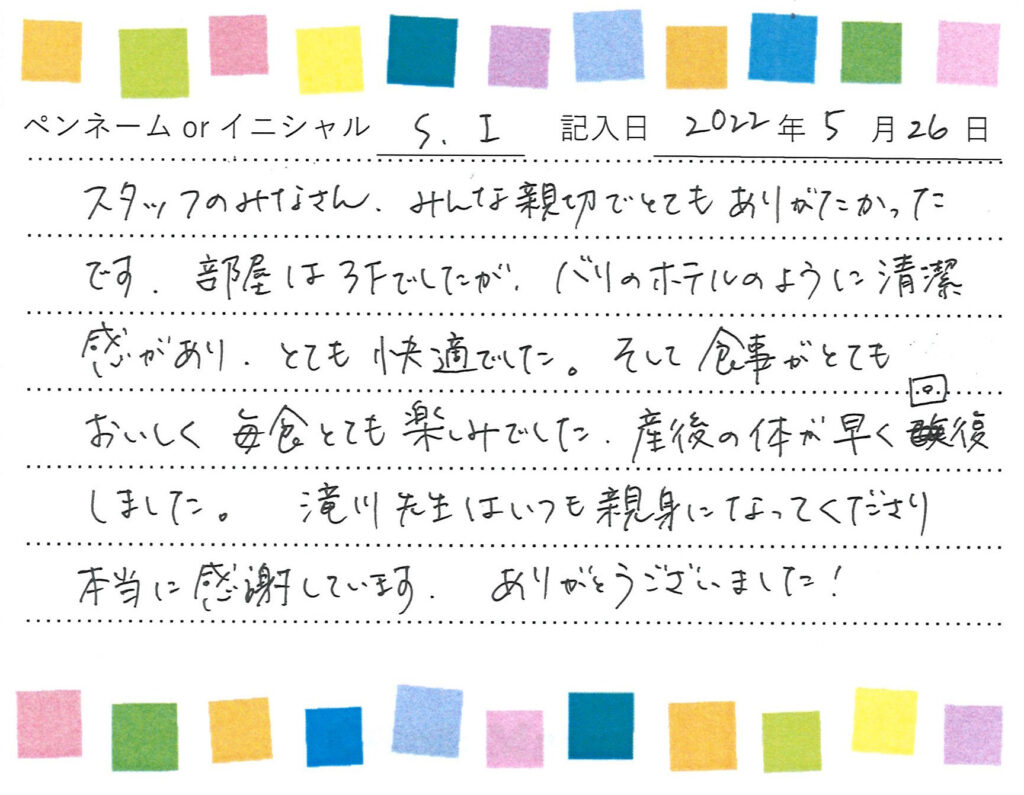 ペンネーム or イニシャル S. I 記入日 2022年 5月 26日
スタッフのみなさん、みんな親切でとてもありがたかった
です. 部屋は3Fでしたが、バリのホテルのように清潔
感があり、とても快適でした。そして食事がとても
おいしく毎食とても楽しみでした. 産後の体が早く回復
しました。 滝川先生はいつも親身になってくださり
本当に感謝しています. ありがとうございました!